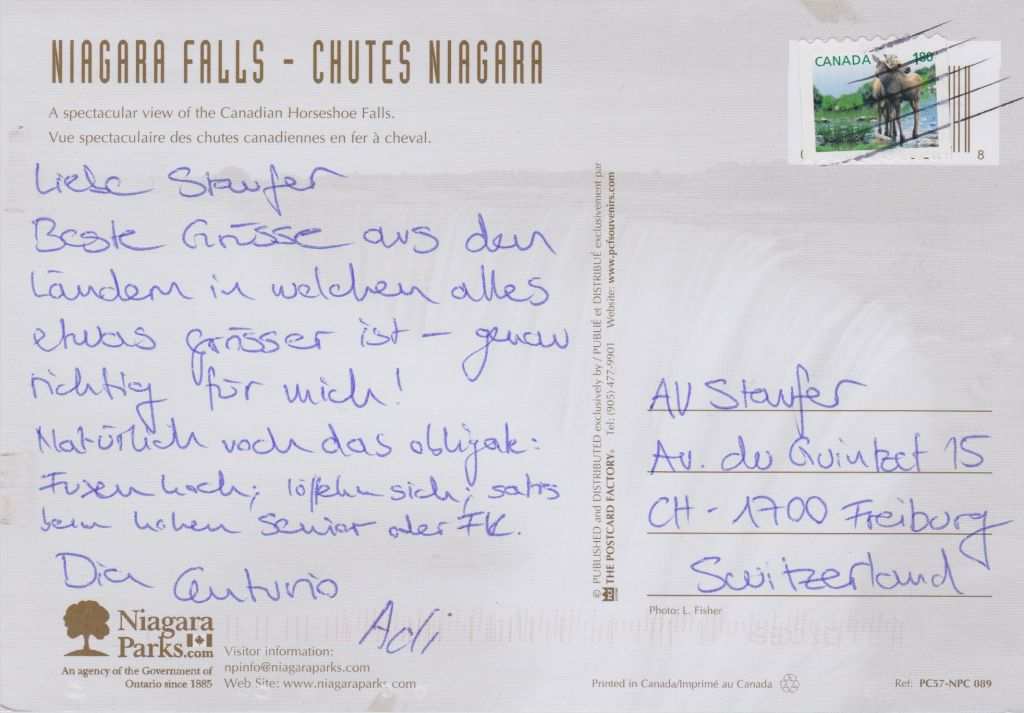 NIAGARA FALLS - CHUTES NIAGARA
A spectacular view of the Canadian Horseshoe Falls.
Vue spectaculaire des chutes canadiennes en fer à cheval.
CANADA 180
8
Liebe Staufer
Beste Grüsse aus den
Ländern in welchen alles
etwas grösser ist – genau
richtig für mich!
Natürlich noch das obligak:
Fuxen hoch; löffeln sich;
beim hohen Senior oder FK.
Dia Centurio
AV Staufer
Av. du Guintzet 15
CH - 1700 Freiburg
Switzerland
Photo: L. Fisher
© PUBLISHED and DISTRIBUTED exclusively by / PUBLIÉ et DISTRIBUÉ exclusivement par
THE POSTCARD FACTORY. Tel: (905) 477-9901 Website: www.pcfsouvenirs.com
Niagara
Parks.com
An agency of the Government of
Ontario since 1885
Visitor information:
npinfo@niagaraparks.com
Web Site: www.niagaraparks.com
Printed in Canada/Imprimé au Canada
Ref: PC57-NPC 089